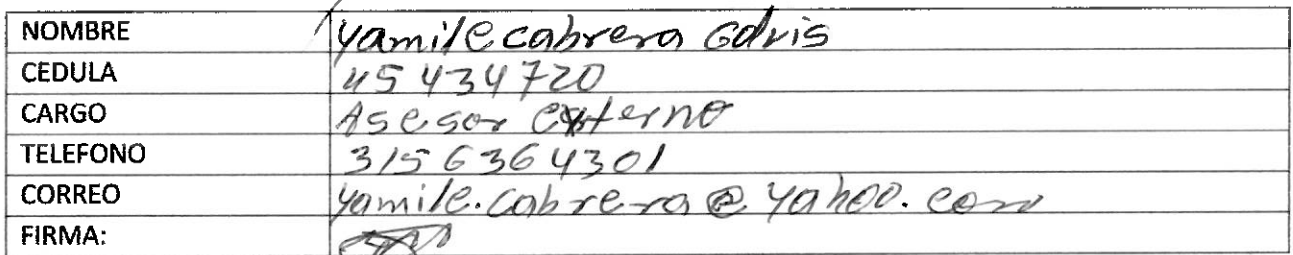 NOMBRE yamile cabrera Gdvis
CEDULA 45434720
CARGO Asesor externo
TELEFONO 3156364301
CORREO yamile.cabrera@yahoo.com
FIRMA: